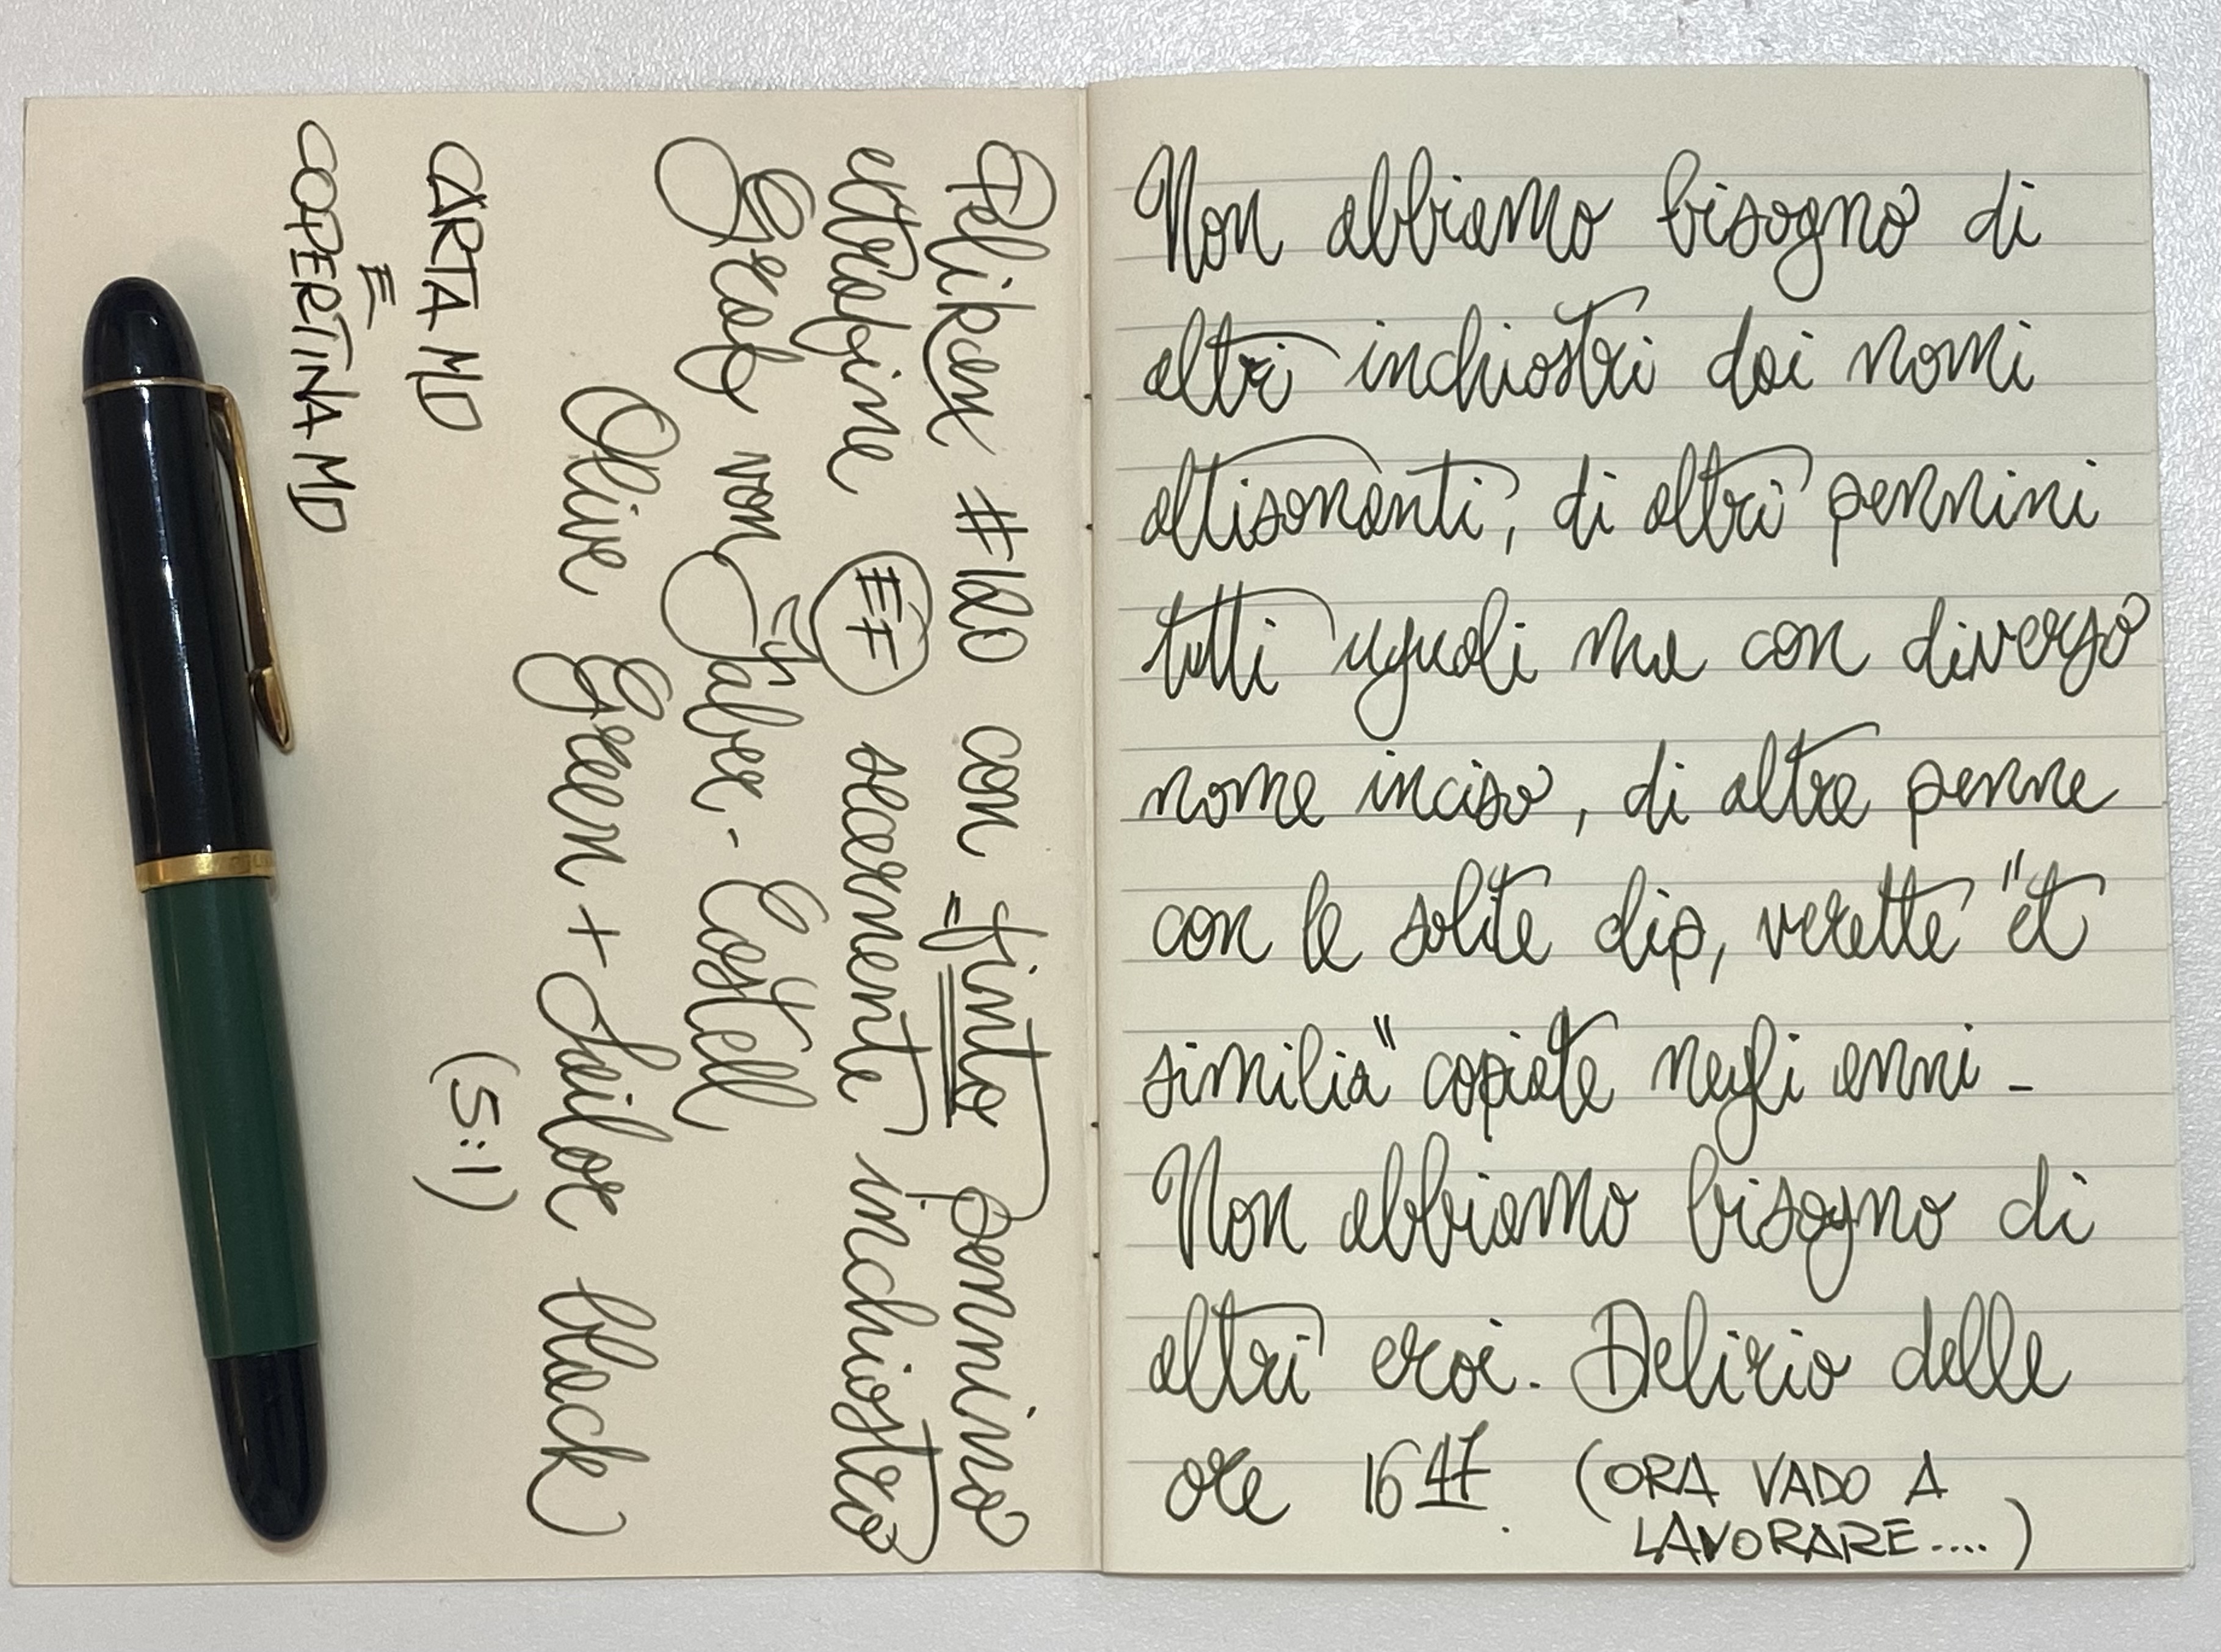 Pelikan #120 con "finto pennino
extrafine EF scarnente inchiostro
Graf von Faber-Castell
Olive Green + Sailor black
(5:1)
CARTA MD
E
COPERTINA MD
Non abbiamo bisogno di
altri inchiostri dai nomi
altisonanti, di altri pennini
tutti uguali ma con diverso
nome inciso, di altre penne
con le solite clip, verette "et
similia" copiate negli anni -
Non abbiamo bisogno di
altri eroi. Delirio delle
ore 16 47. (ORA VADO A
LAVORARE....)